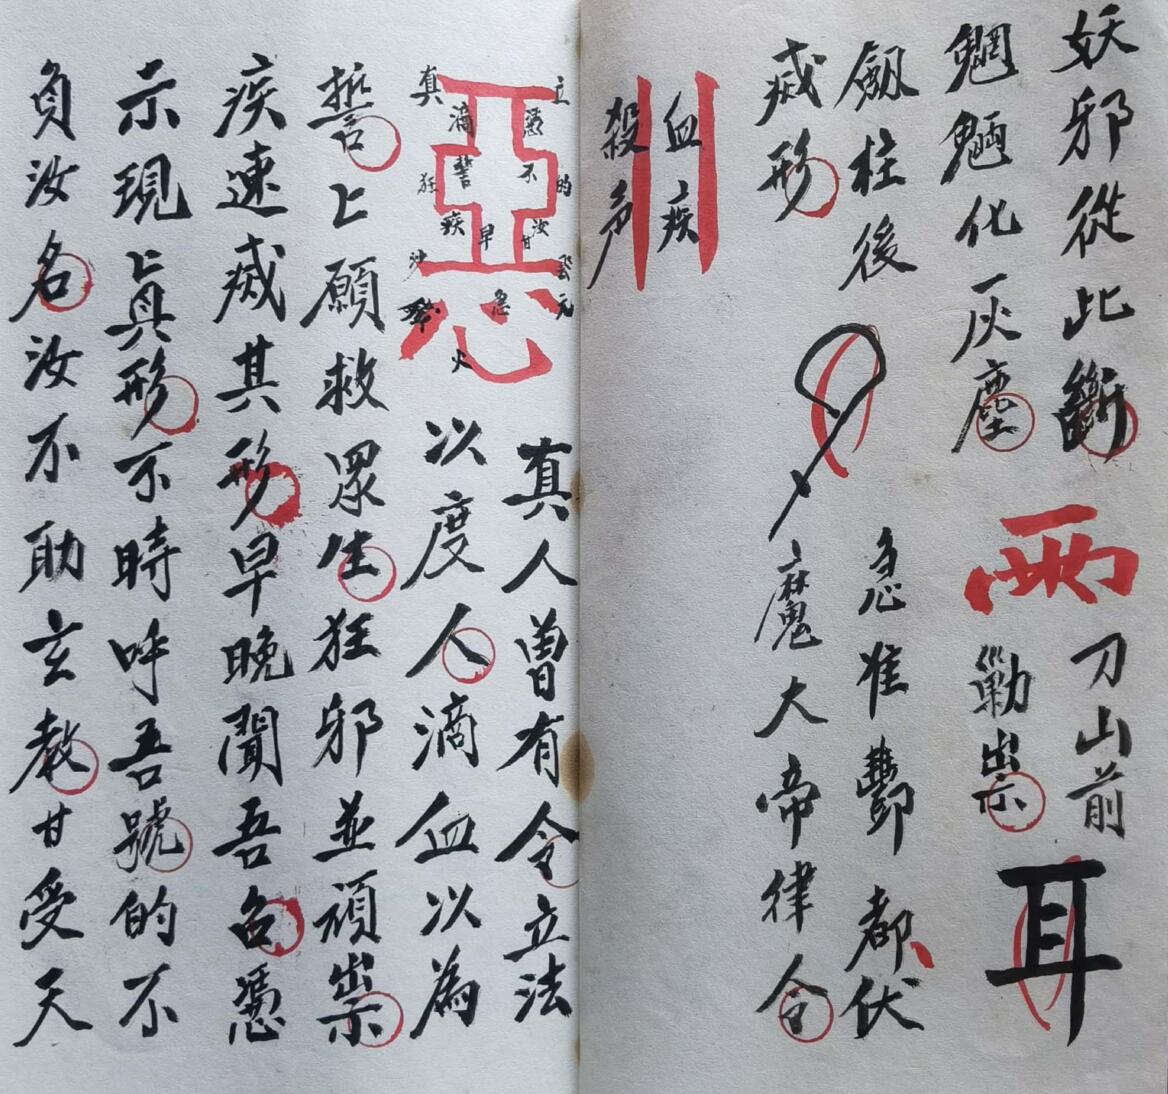 妖邪從此斷
魍魎化灰塵
兩
刀山前
勦祟
耳
劔柱後
滅形
急准酆都伏
魔大帝律令
血疾
殺
真人曾有令立法
以度人滴血以為
立
憑
真
滴
不
誓
的
狂
汝
甘
早
疾
元
急
火
誓上願救眾生狂邪並頑祟
疾速滅其形早晚聞吾召憑
示現上真形不時呼吾號的不
負汝名汝不助玄教甘受天